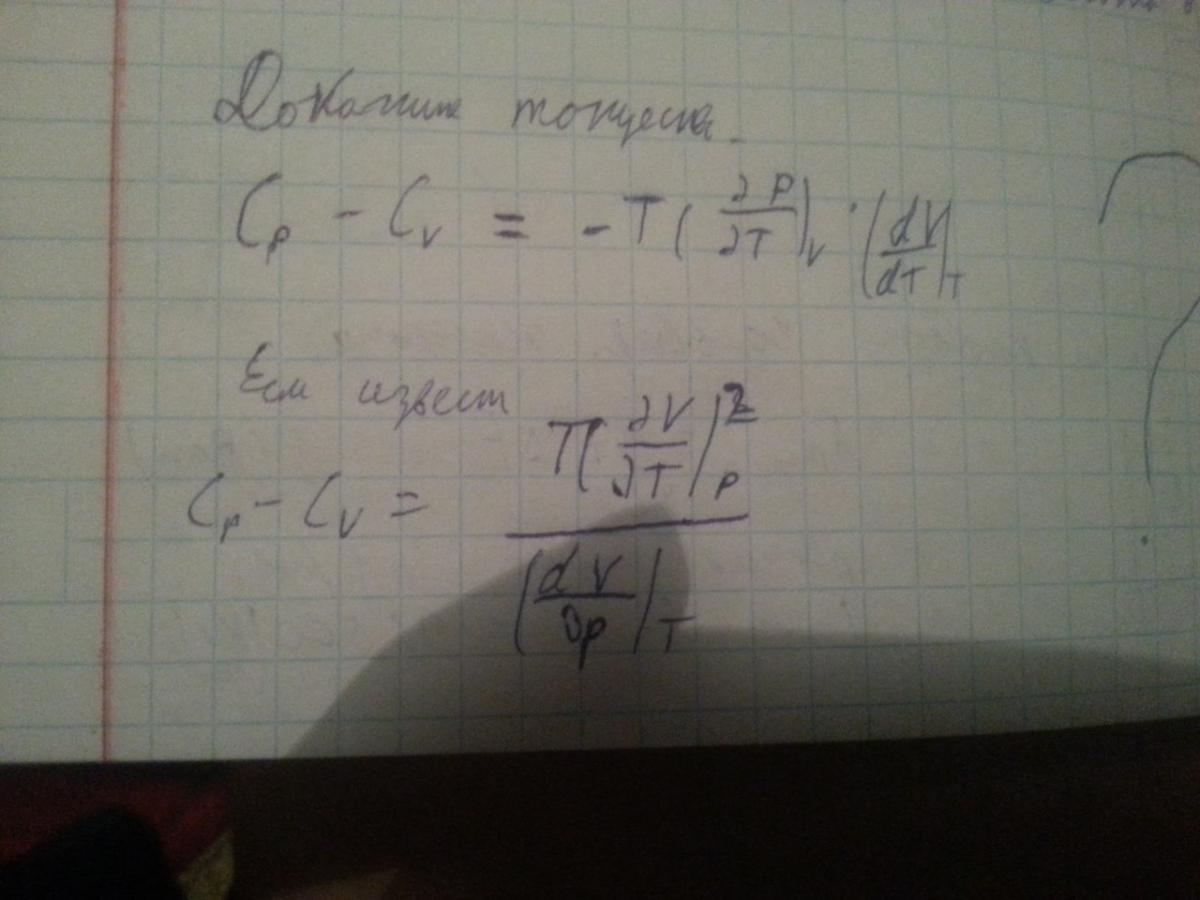 Докажите тождества.
C_p - C_v = -T(∂P/∂T)_v · (dV/dT)_T
Если извест
C_p - C_v = T(∂V/∂T)²_p / (dV/∂p)_T